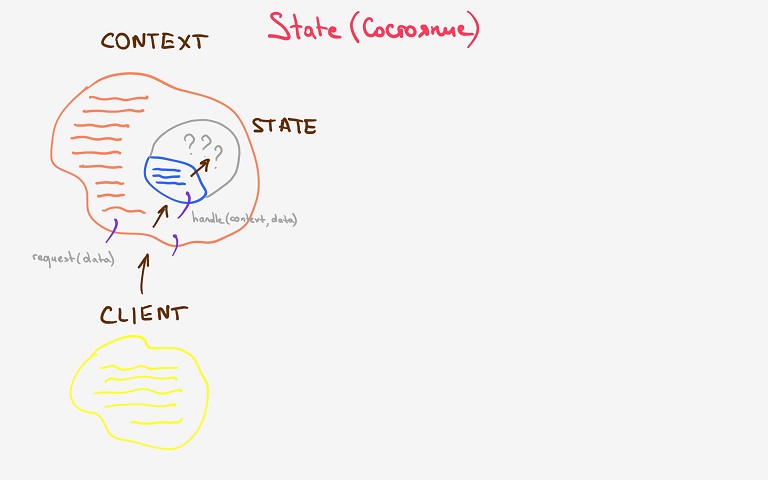 State (Состояние)
CONTEXT
STATE
???
handle(context, data)
request(data)
CLIENT